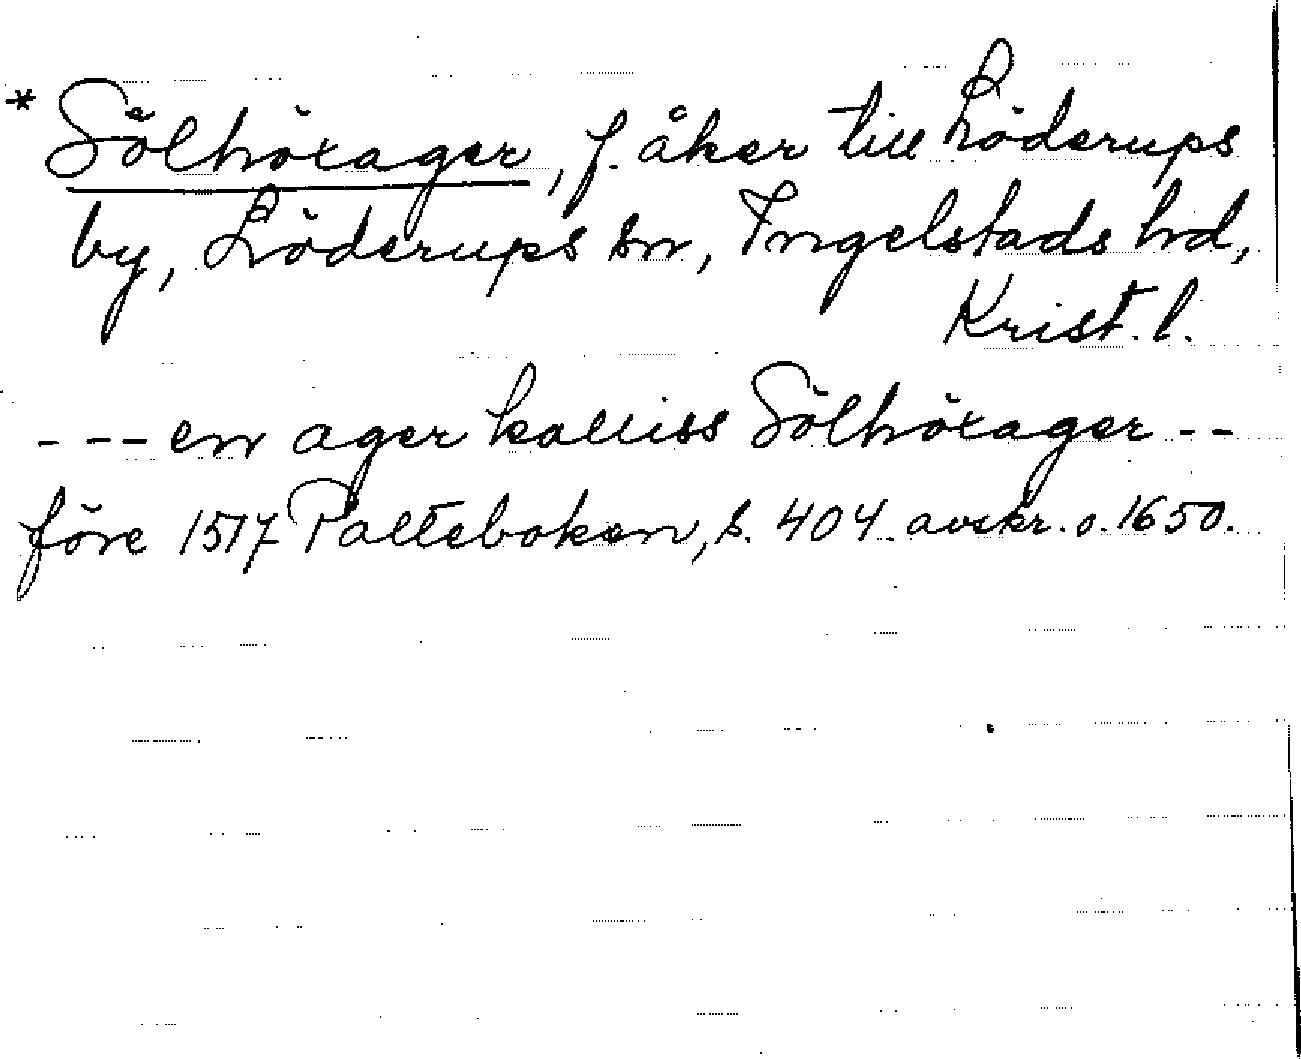 * Sölhöxager, f. åker till Löderups
by, Löderups sn, Ingelstads hd,
Krist. l.
--- en ager kalliss Sölhöxager --
före 1517 Palteboken, s. 404 avskr. o. 1650.